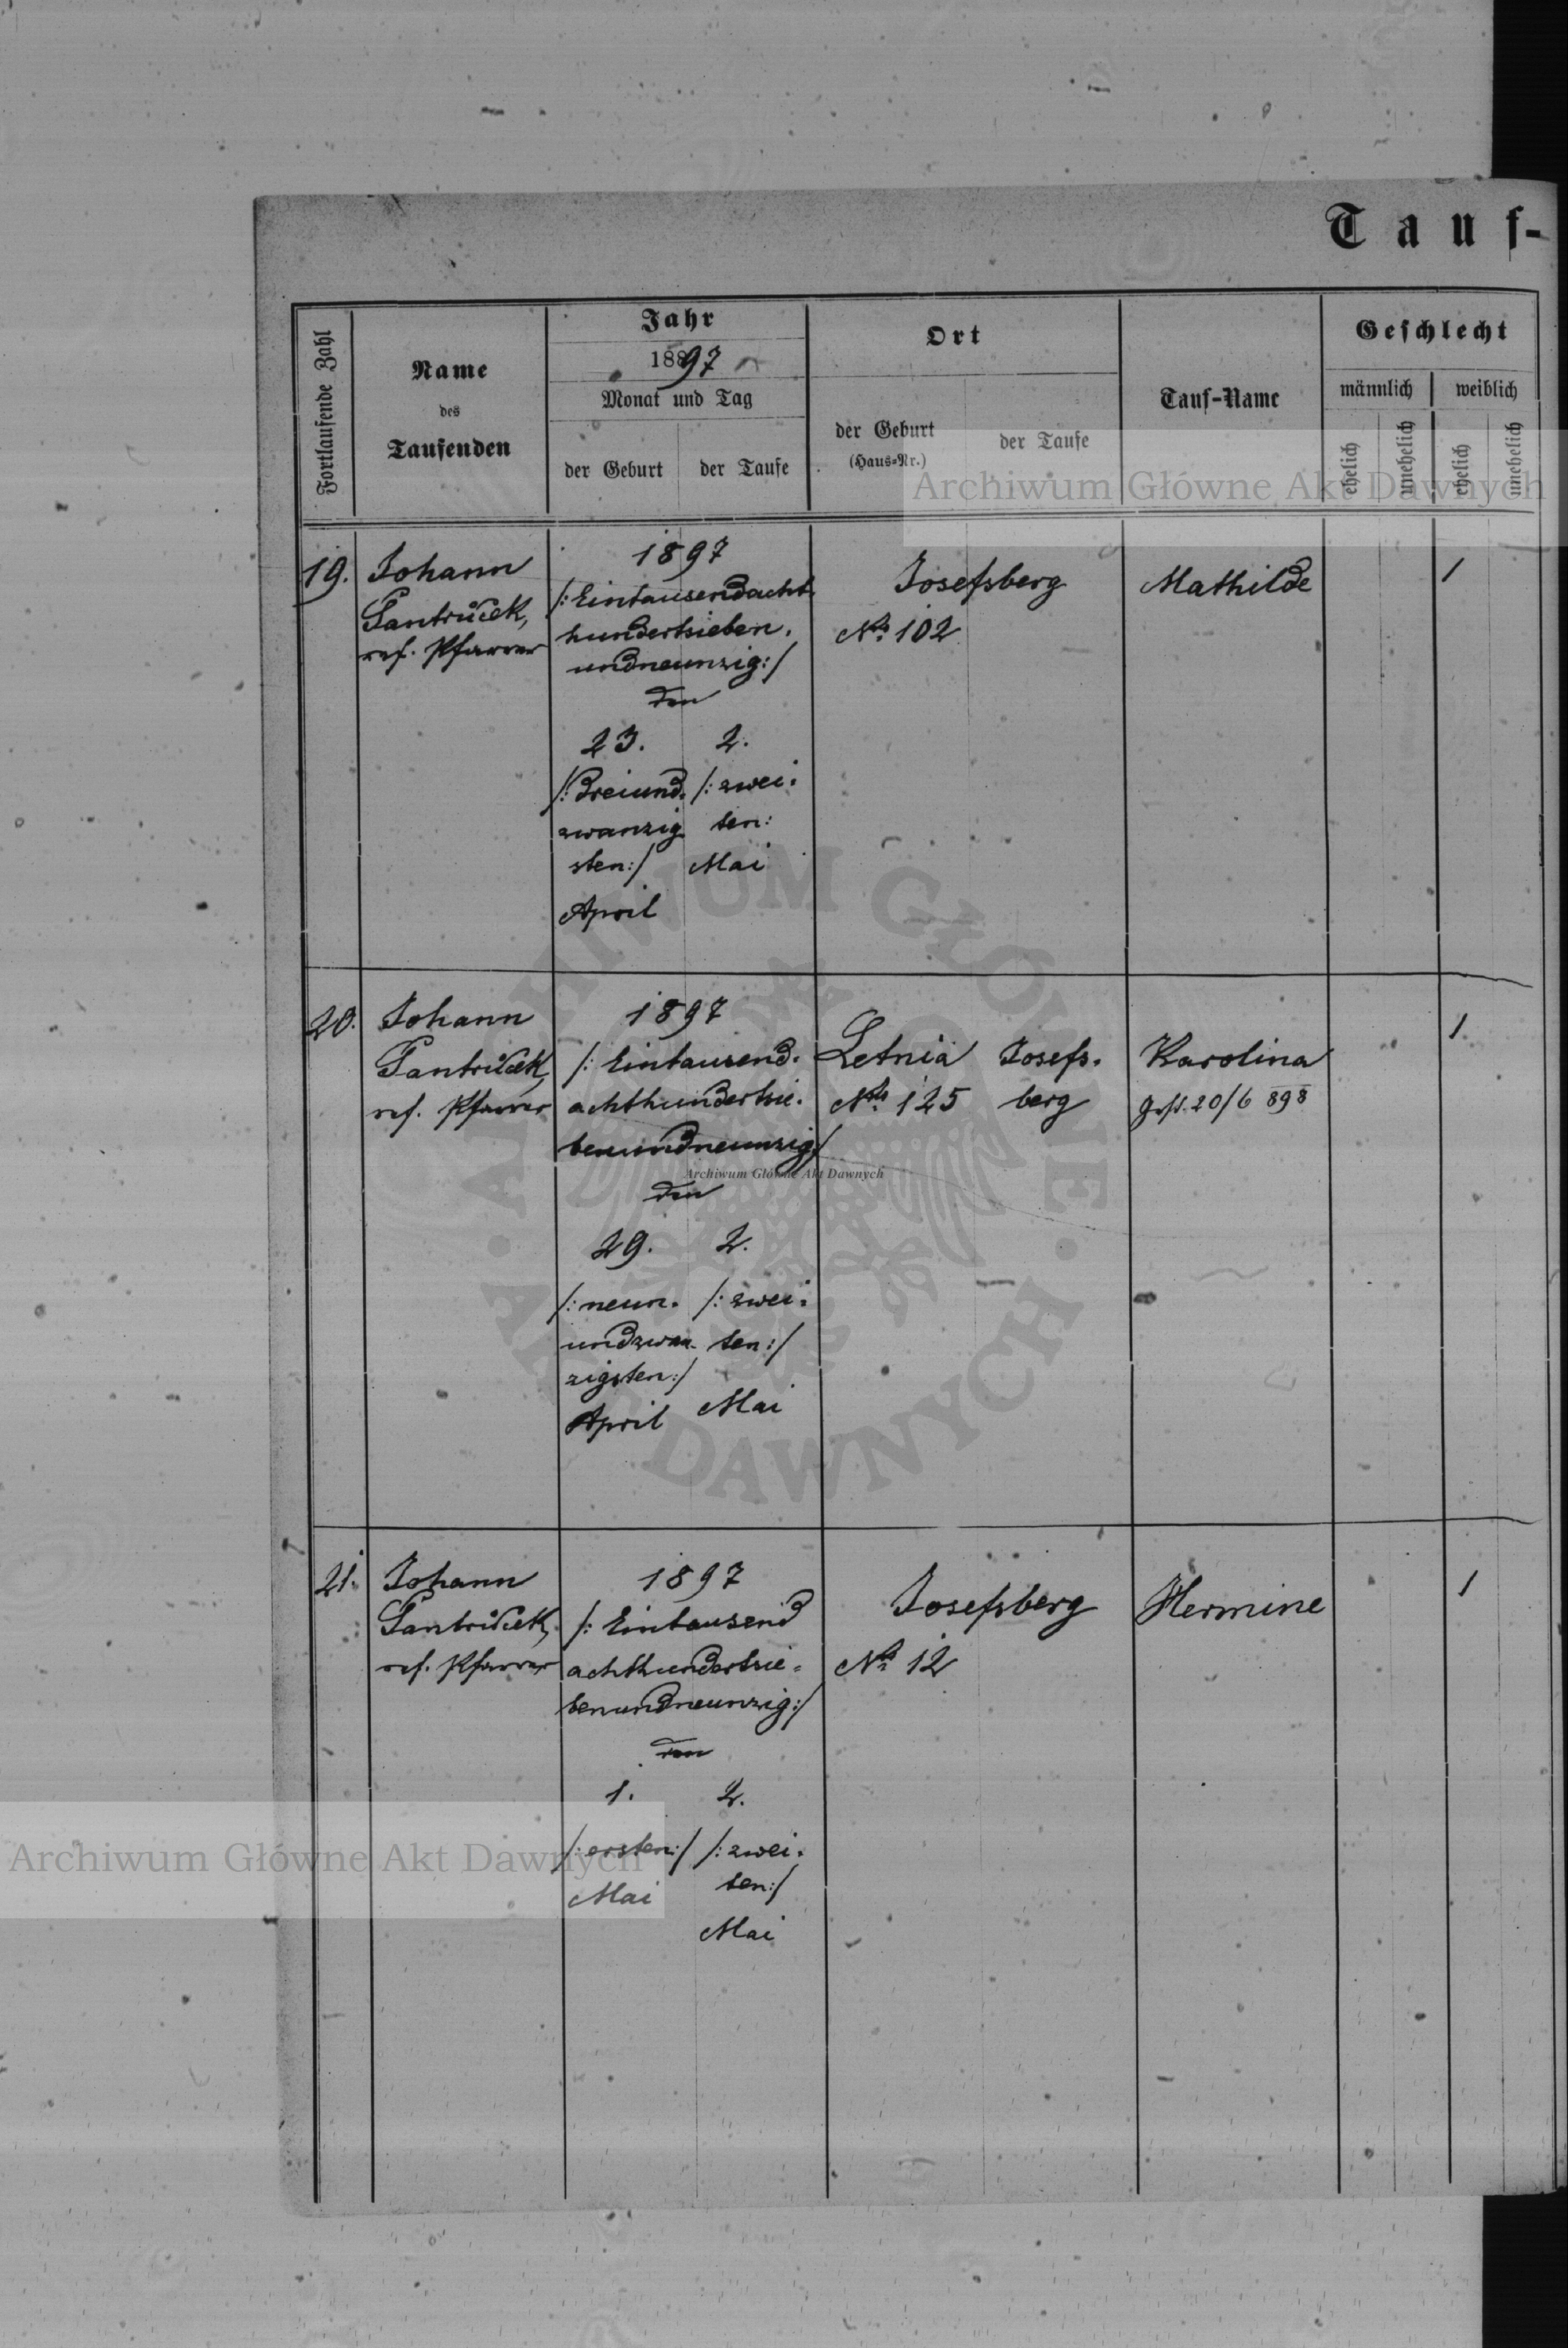 Tauf-
Fortlaufende Zahl
Name
des
Taufenden
Jahr
1897
Monat und Tag
der Geburt
der Taufe
Ort
der Geburt
(Haus=Nr.)
der Taufe
Tauf-Name
Geschlecht
männlich
weiblich
ehelich
unehelich
ehelich
unehelich
Archiwum Główne Akt Dawnych
19.
Johann
Pantrůček,
ref. Pfarrer
1897
/:Eintausendacht-
hundertsieben-
undneunzig:/
den
23.
/:dreiund-
zwanzig
sten:/
April
2.
/:zwei-
ten:
Mai
Josefsberg
No 102
Mathilde
1
20.
Johann
Pantrůček,
ref. Pfarrer
1897
/: Eintausend-
achthundertsie-
benundneunzig/
den
29.
/:neun-
undzwan-
zigsten:/
April
2.
/:zwei-
ten:/
Mai
Letnia
No 125
Josefs-
berg
Karolina
gest. 20/6 898
1
Archiwum Główne Akt Dawnych
21.
Johann
Pantrůček,
ref. Pfarrer
1897
/: Eintausend
achthundertsie-
benundneunzig:/
den
1.
/:ersten:/
Mai
2.
/:zwei-
ten:/
Mai
Josefsberg
No 12
Hermine
1
Archiwum Główne Akt Dawnych
ARCHIWUM GŁÓWNE · AKT DAWNYCH ·